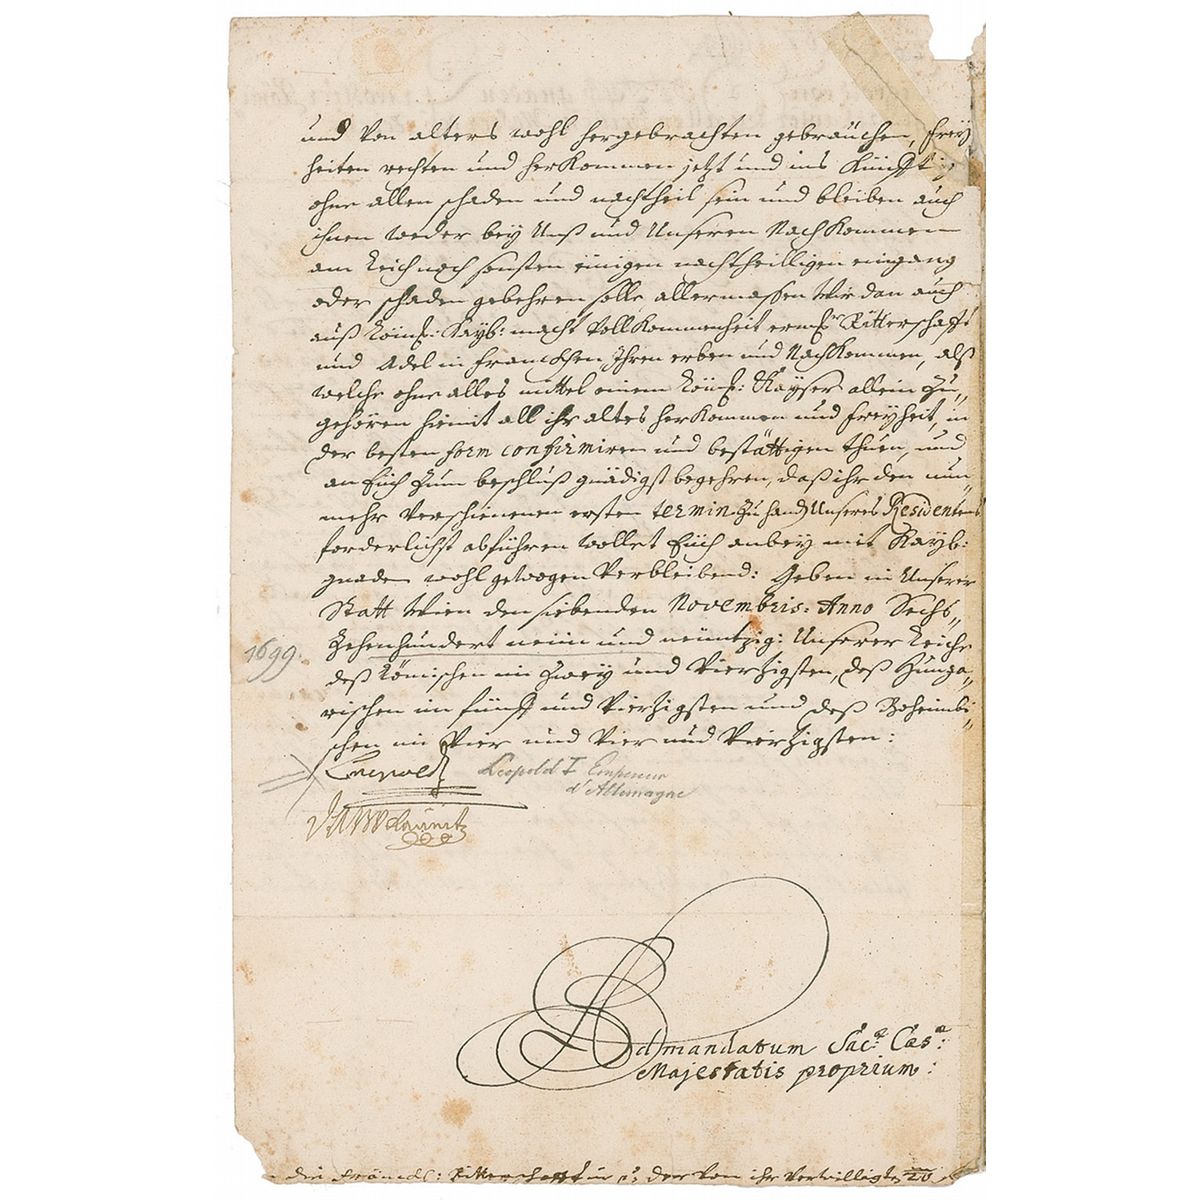 und von alters wohl hergebrachten gebräuchen, frey
heiten rechten und herkommen jetzt und ins künfftig
ohne allen schaden und nachtheil sein und bleiben auch
ihnen weder bey Unß und Unseren Nachkommen
am Reich noch sonsten einigen nachtheilligen eingang
oder schaden gebehren solle allermassen Wir dan auch
auß Röm: Kayß: macht Vollkommenheit Ritterschafft
und Adel in Francken Ihren erben und Nachkommen, alß
welche ohne alles mittel einem Röm: Kayser allein zu„
gehören hiemit all ihr altes herkommen und freyheit, in
der besten form confirmiren und bestättigen thuen, und
an Euch zum beschluß gnädigst begehren, daß ihr den nun„
mehr verschienenen ersten termin zu hand Unseres Residentens
forderlichst abführen wollet Euch anbey mit Kayß:
gnaden wohl gewogen verbleibend: Geben in Unserer
Statt Wien den siebenden Novembris: Anno Sechs„
1699. zehenhundert neün und neüntzig: Unserer Reiche
deß Römischen im zwey und vierzigsten, deß Hunga„
rischen im fünff und vierzigsten und deß Boheimbi„
schen im vier und vierzigsten:
Leopold Leopold I Empereur
d'Allemagne
Kaunitz
Ad mandatum Sac.ae Cæs.ae
Majestatis proprium:
die Fränck: Ritterschafft der von ihr verwilligte 20